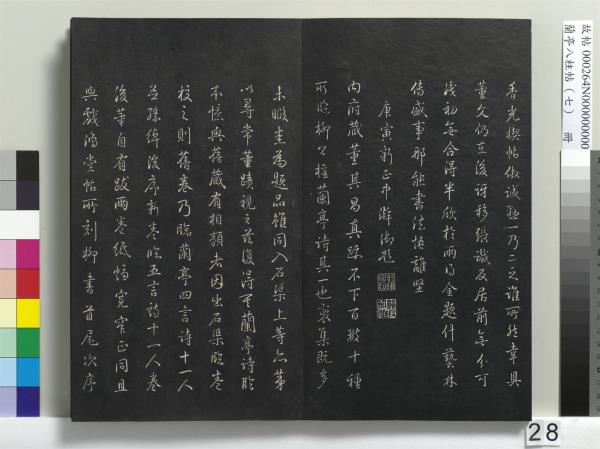 香光稧帖俶誠懸一乃二之誰所能章具
董久仍在後訝移張識反居前無分可
淺初無合得半欣於兩得全題什藝林
傳盛事那能書法悟離堅
庚寅新正中澣御題
內府藏董其昌真跡不下百數十種
所臨柳公權蘭亭詩其一也裒集既多
未暇悉為題品雖同入石渠上等亦第
以尋常董蹟視之茲復得其蘭亭詩臨
不憶與舊藏有相類者因出石渠臨卷
校之則舊卷乃臨蘭亭四言詩十一人
並孫綽後序新卷臨五言詩十一人卷
後華自有跋兩卷低幅寬窄正同且
與戲鴻堂帖所刻柳書首尾次序
故帖 000264N000000000
蘭亭八柱帖（七） 冊
28